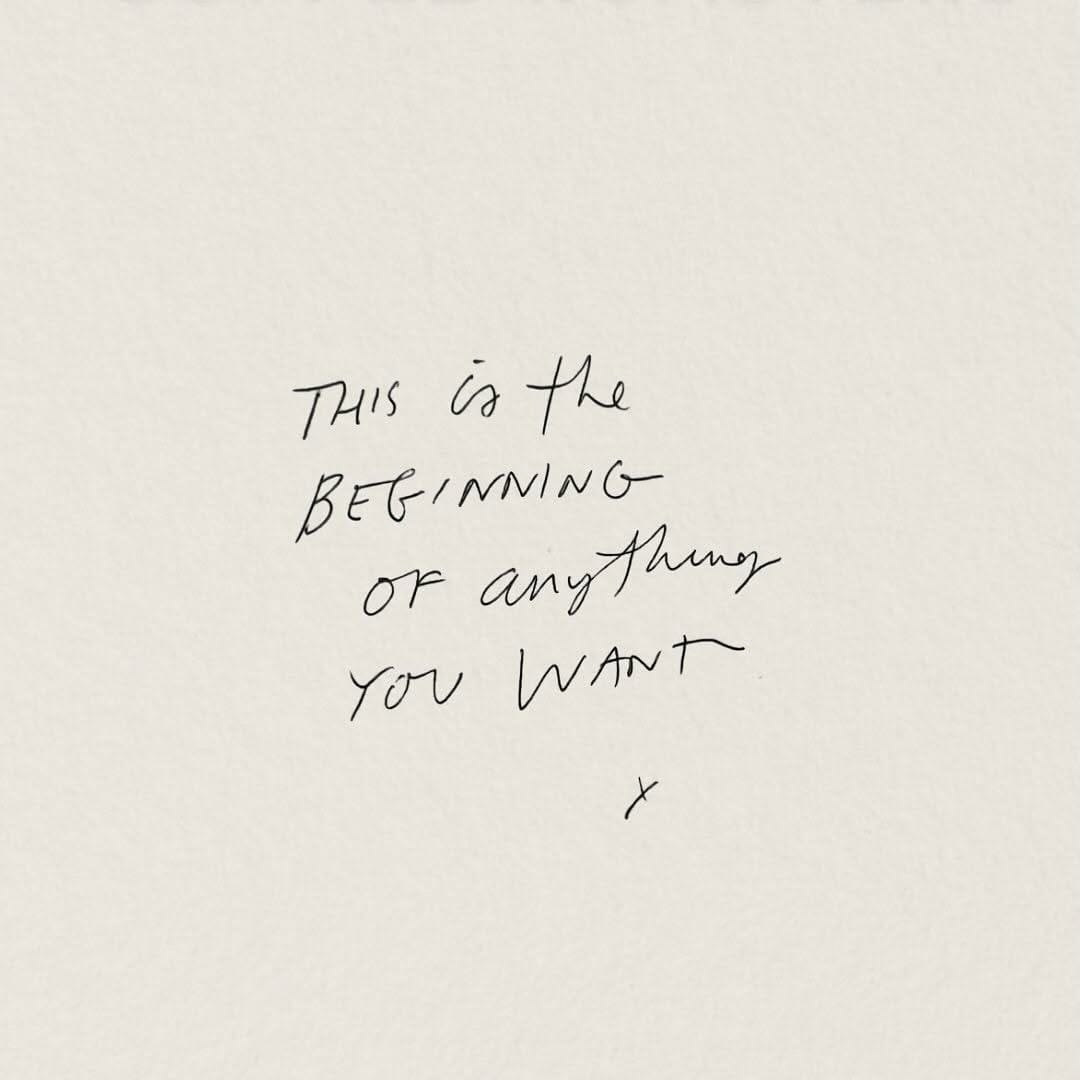 THIS is the
BEGINNING
OF anything
YOU WANT
x